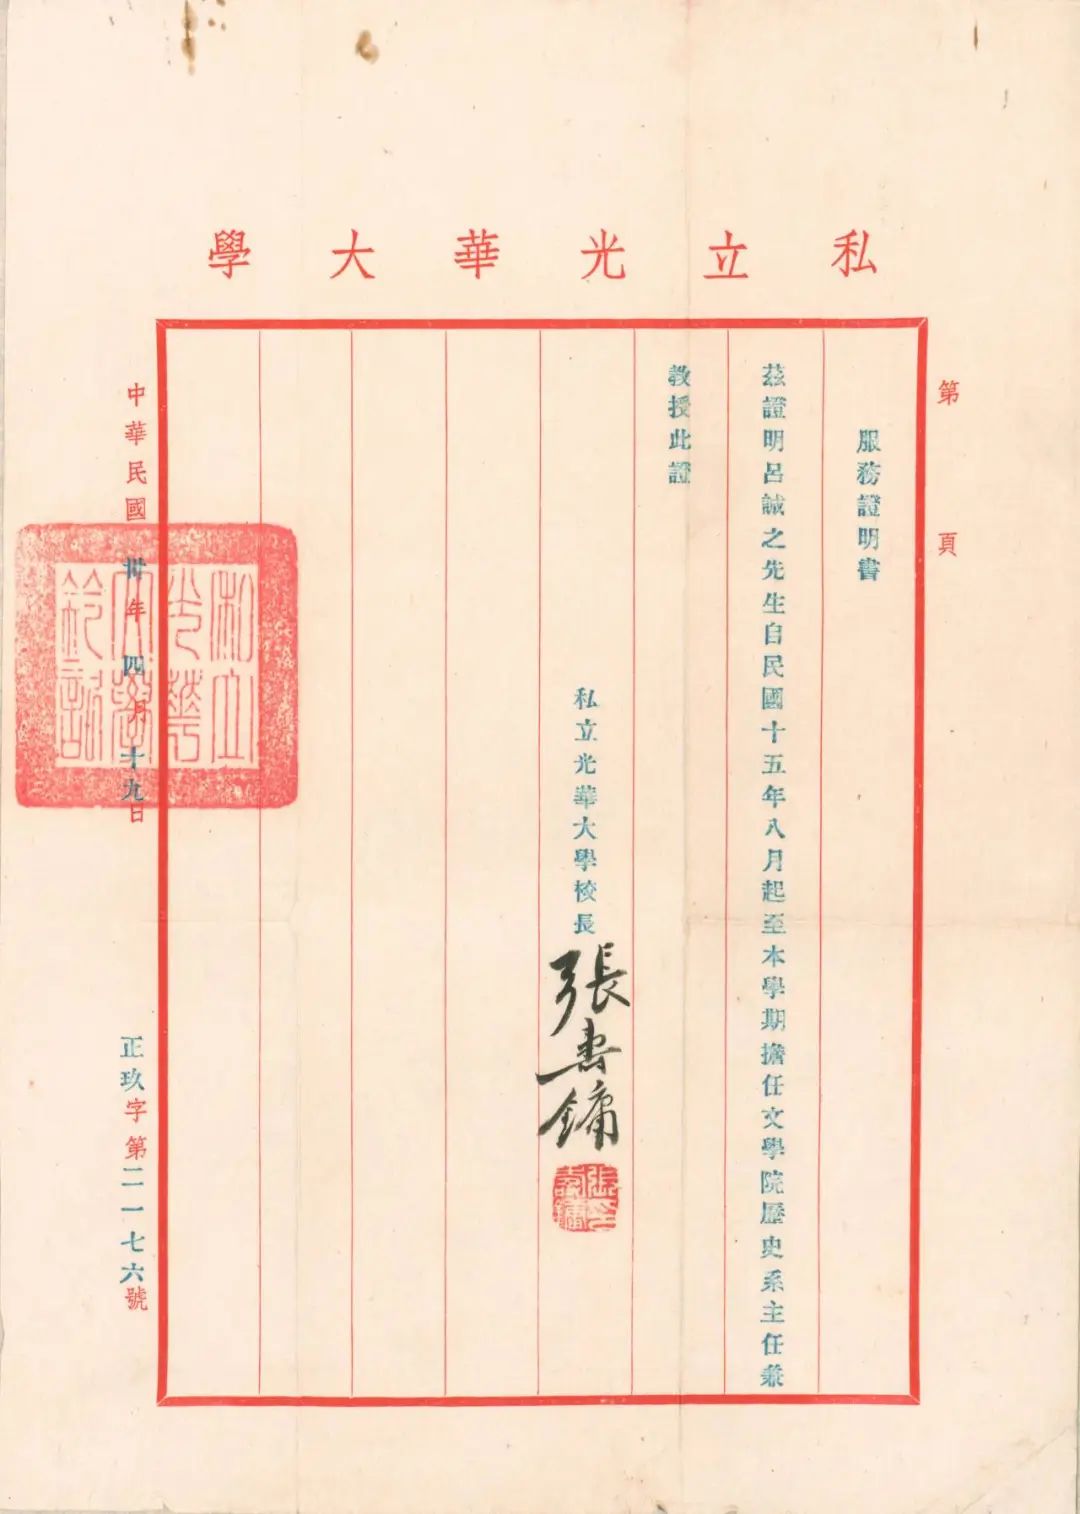 私立光華大學
第 頁
服務證明書
茲證明呂誠之先生自民國十五年八月起至本學期擔任文學院歷史系主任兼
教授此證
私立光華大學校長
張壽鏞
張壽鏞印
中華民國卅年四月十九日
私立光華大學鈐記
正玖字第二一七六號